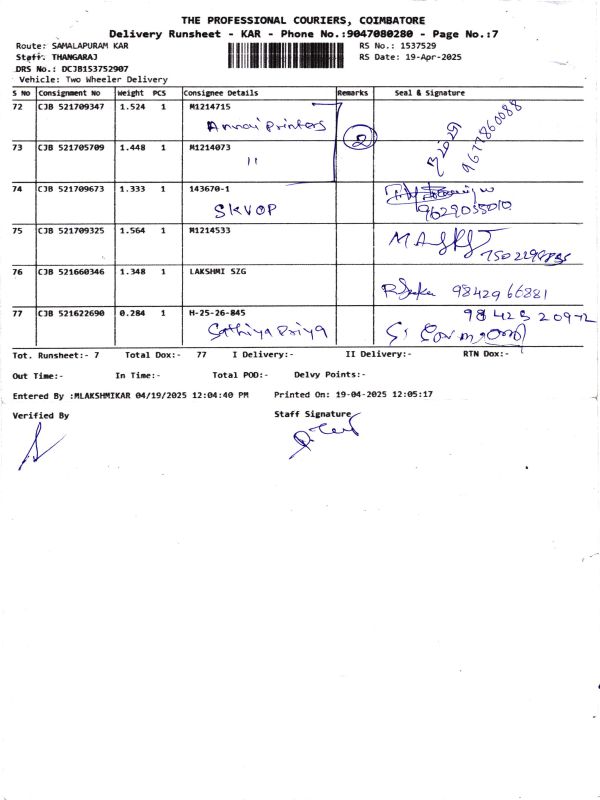 THE PROFESSIONAL COURIERS, COIMBATORE
Delivery Runsheet - KAR - Phone No.:9047080280 - Page No.:7
Route: SAMALAPURAM KAR RS No.: 1537529
Staff: THANGARAJ RS Date: 19-Apr-2025
DRS No.: DCJB153752907
Vehicle: Two Wheeler Delivery
S No Consignment No Weight PCS Consignee Details Remarks Seal & Signature
72 CJB 521709347 1.524 1 M1214715
Annai Printers 2 9677860088
73 CJB 521705709 1.448 1 M1214073
11
74 CJB 521709673 1.333 1 143670-1
SKVOP 9629055010
75 CJB 521709325 1.564 1 M1214533
76 CJB 521660346 1.348 1 LAKSHMI SZG
9842966881
77 CJB 521622690 0.284 1 H-25-26-845 9842520972
Sathiya Priya
Tot. Runsheet:- 7 Total Dox:- 77 I Delivery:- II Delivery:- RTN Dox:-
Out Time:- In Time:- Total POD:- Delvy Points:-
Entered By :MLAKSHMIKAR 04/19/2025 12:04:40 PM Printed On: 19-04-2025 12:05:17
Verified By Staff Signature